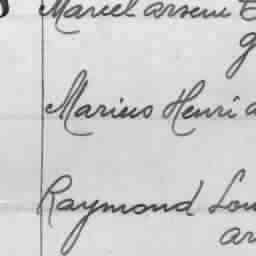 Marcel arsene
Marius Henri
Raymond Lou
ar